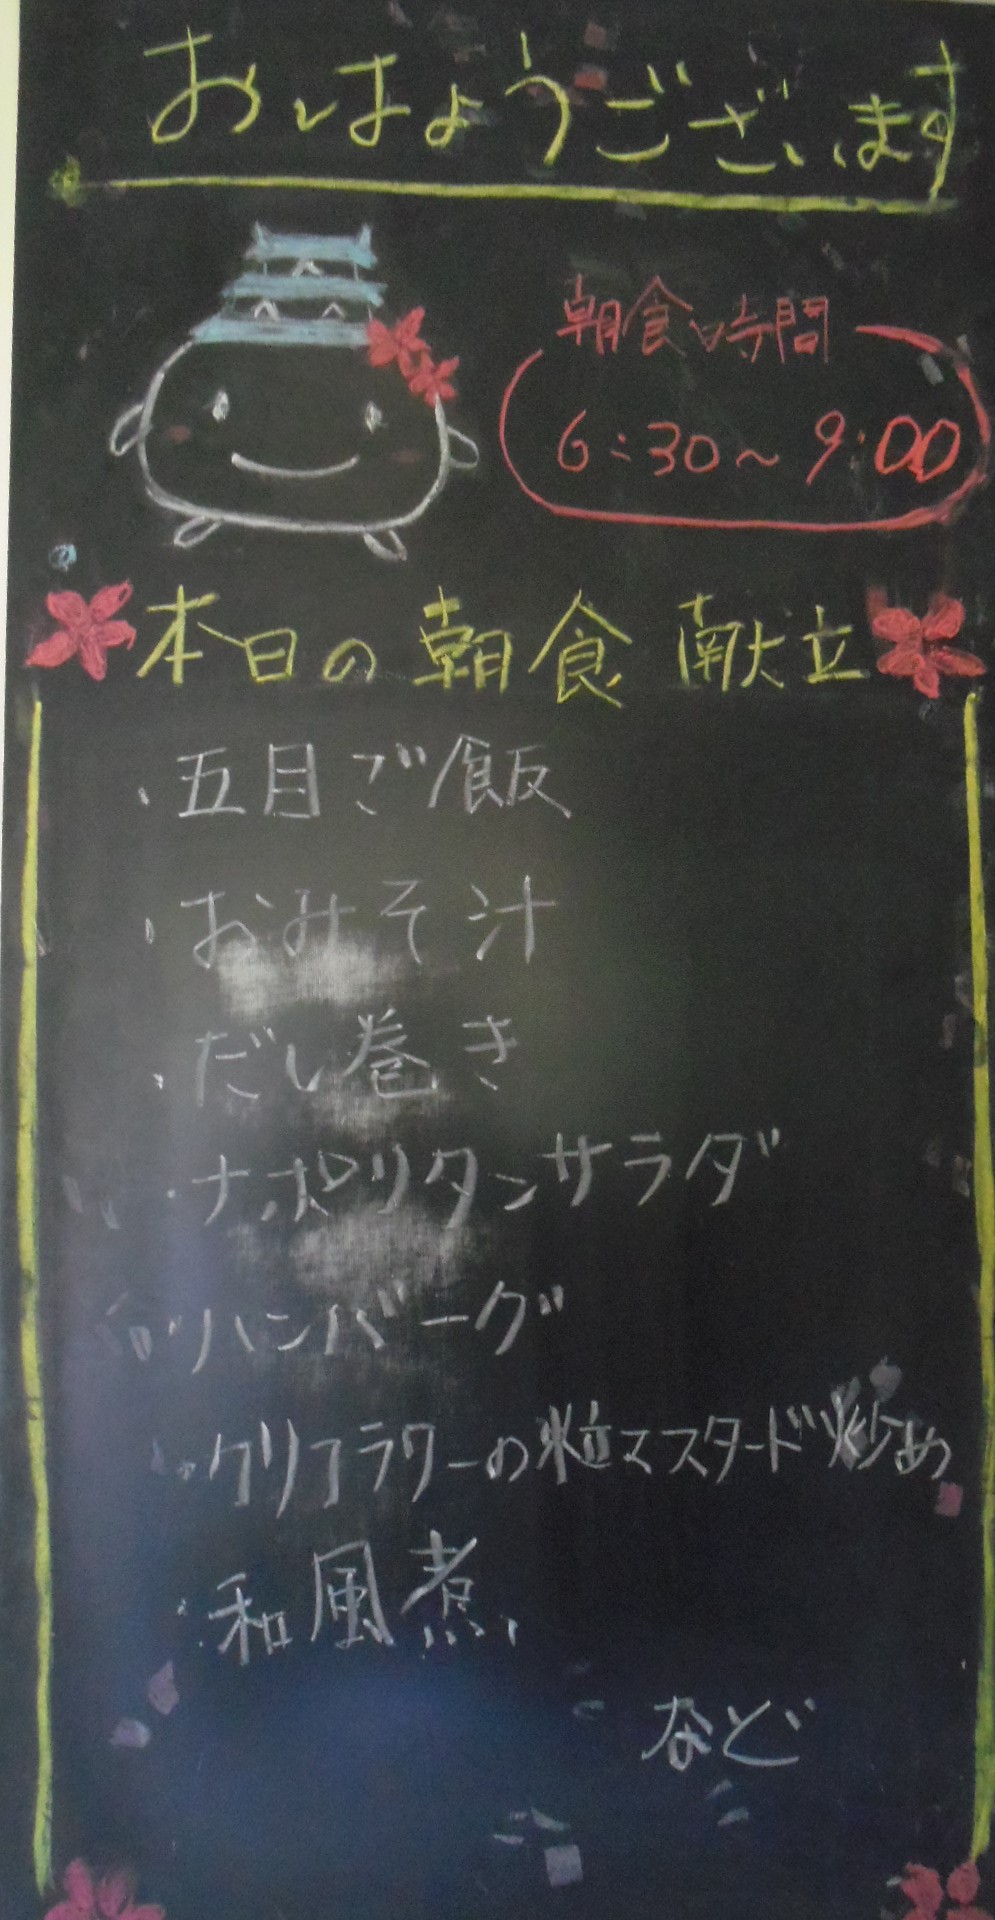 おはようございます
朝食時間
6:30~9:00
本日の朝食献立
・五目ご飯
・おみそ汁
・だし巻き
・ナポリタンサラダ
・ハンバーグ
・クリフラワーの粒マスタード炒め
・和風煮
など